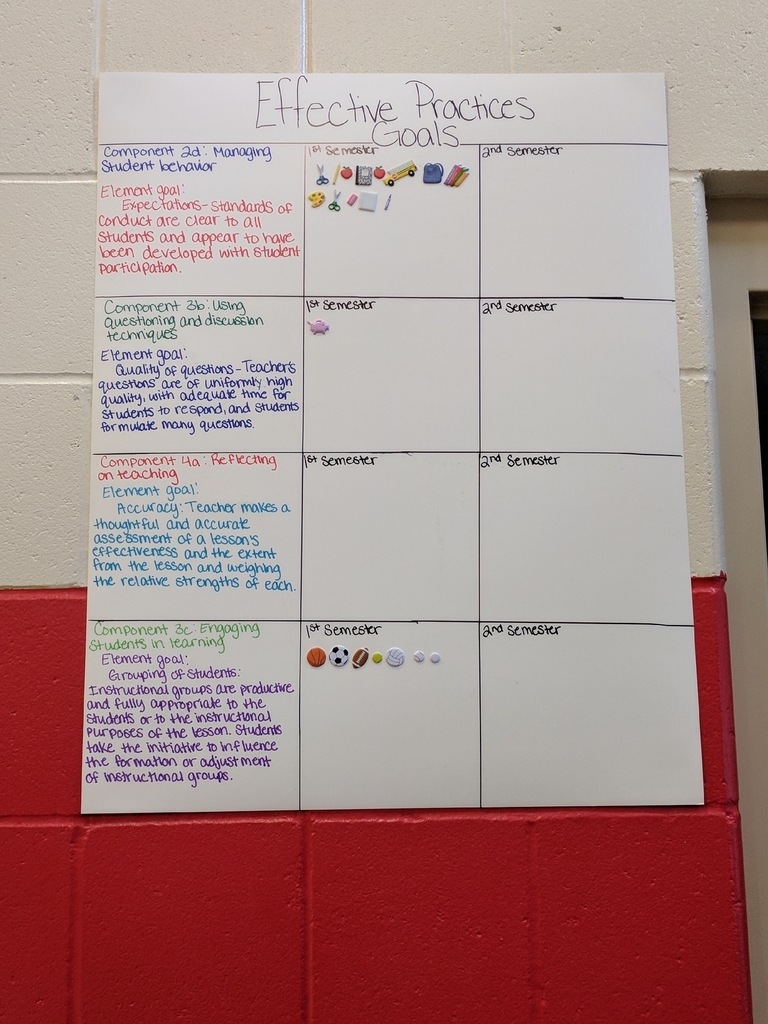 Effective Practices
Goals
Component 2d: Managing
Student behavior
Element goal:
Expectations- Standards of
Conduct are clear to all
Students and appear to have
been developed with student
participation.
1st Semester
2nd Semester
Component 3b: Using
questioning and discussion
techniques
Element goal:
Quality of questions- Teacher's
questions are of uniformly high
quality, with adequate time for
students to respond, and students
formulate many questions.
1st Semester
2nd Semester
Component 4a: Reflecting
on teaching
Element goal:
Accuracy: Teacher makes a
thoughtful and accurate
assessment of a lesson's
effectiveness and the extent
from the lesson and weighing
the relative strengths of each.
1st Semester
2nd Semester
Component 3c: Engaging
Students in learning
Element goal:
Grouping of Students:
Instructional groups are productive
and fully appropriate to the
students or to the instructional
purposes of the lesson. Students
take the initiative to influence
the formation or adjustment
of instructional groups.
1st Semester
2nd Semester